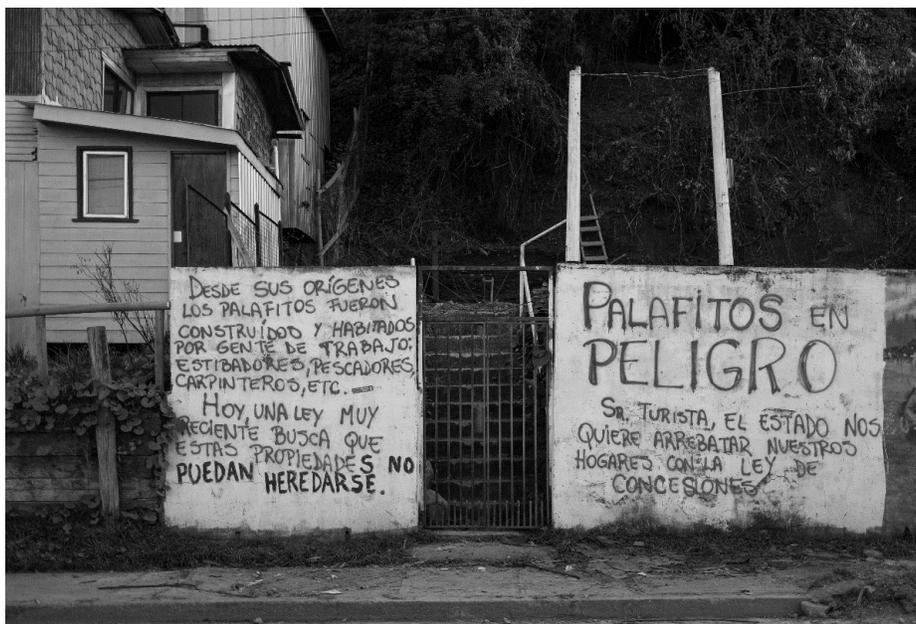 DESDE SUS ORÍGENES
LOS PALAFITOS FUERON
CONSTRUÍDOD Y HABITADOS
POR GENTE DE TRABAJO:
ESTIBADORES, PESCADORES,
CARPINTEROS, ETC.
HOY, UNA LEY MUY
RECIENTE BUSCA QUE
ESTAS PROPIEDADES NO
PUEDAN HEREDARSE.
PALAFITOS EN
PELIGRO
SR. TURISTA, EL ESTADO NOS
QUIERE ARREBATAR NUESTROS
HOGARES CON LA LEY DE
CONCESIONES